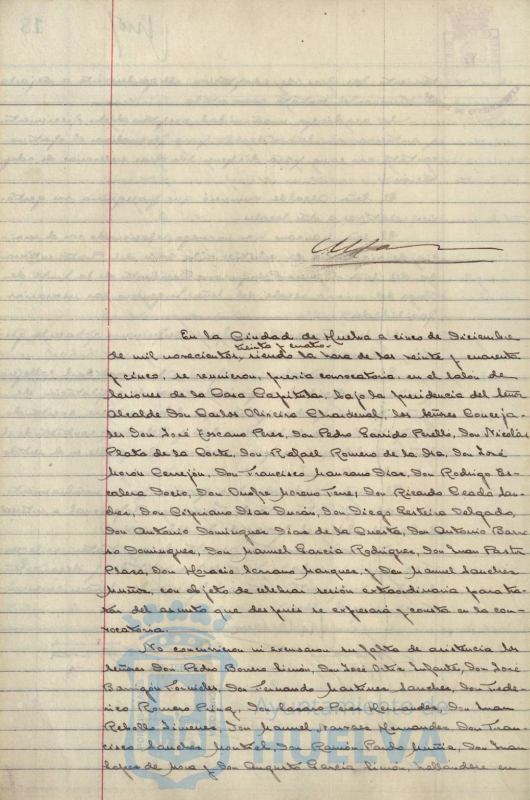 En la Ciudad de Huelva a cinco de Diciembre
treinta y cuatro
de mil novecientos, siendo la hora de las veinte y cuarenta
y cinco, se reunieron, previa convocatoria, en el salón de
sesiones de la Casa Capitular, bajo la presidencia del Señor
Alcalde Don Carlos Oliveira Chardenal, los Señores Conceja-
les Don José Lozano Perez, Don Pedro Garrido Perelló, Don Nicolás
Plata de la Corte, Don Rafael Romero de la Dia, Don José
Morón Cerrejón, Don Francisco Manzano Dias, Don Rodrigo Es-
calera Docio, Don Onofre Moreno Fene, Don Ricardo Ceada San-
chez, Don Cipriano Dias Durán, Don Diego Gesteira Delgado,
Don Antonio Dominguez Dias de la Cuesta, Don Antonio Barri-
so Dominguez, Don Manuel Garcia Rodriguez, Don Juan Pastor
Plaza, Don Horacio Serrano Marquez, y Don Manuel Sanchez
Muñoz, con objeto de celebrar sesión extraordinaria para tra-
tar del asunto que después se expresará y consta en la con-
vocatoria.
No concurrieron ni excusaron su falta de asistencia los
Señores Don Pedro Borrero Limón, Don José Ortiz Infante, Don José
Barrigón Fornieles, Don Fernando Martinez Sanchez, Don Fede-
rico Romero Ping, Don Lazaro Perez Hernandez, Don Juan
Rebollo Jimenez, Don Manuel Hernandez, Don Fran-
cisco Sanchez Montiel, Don Ramón Pardo Muñiz, Don Juan
Lopez de Mora y Don Augusto Garcia Limón, hallándose en
Ayuntamiento de
HUELVA